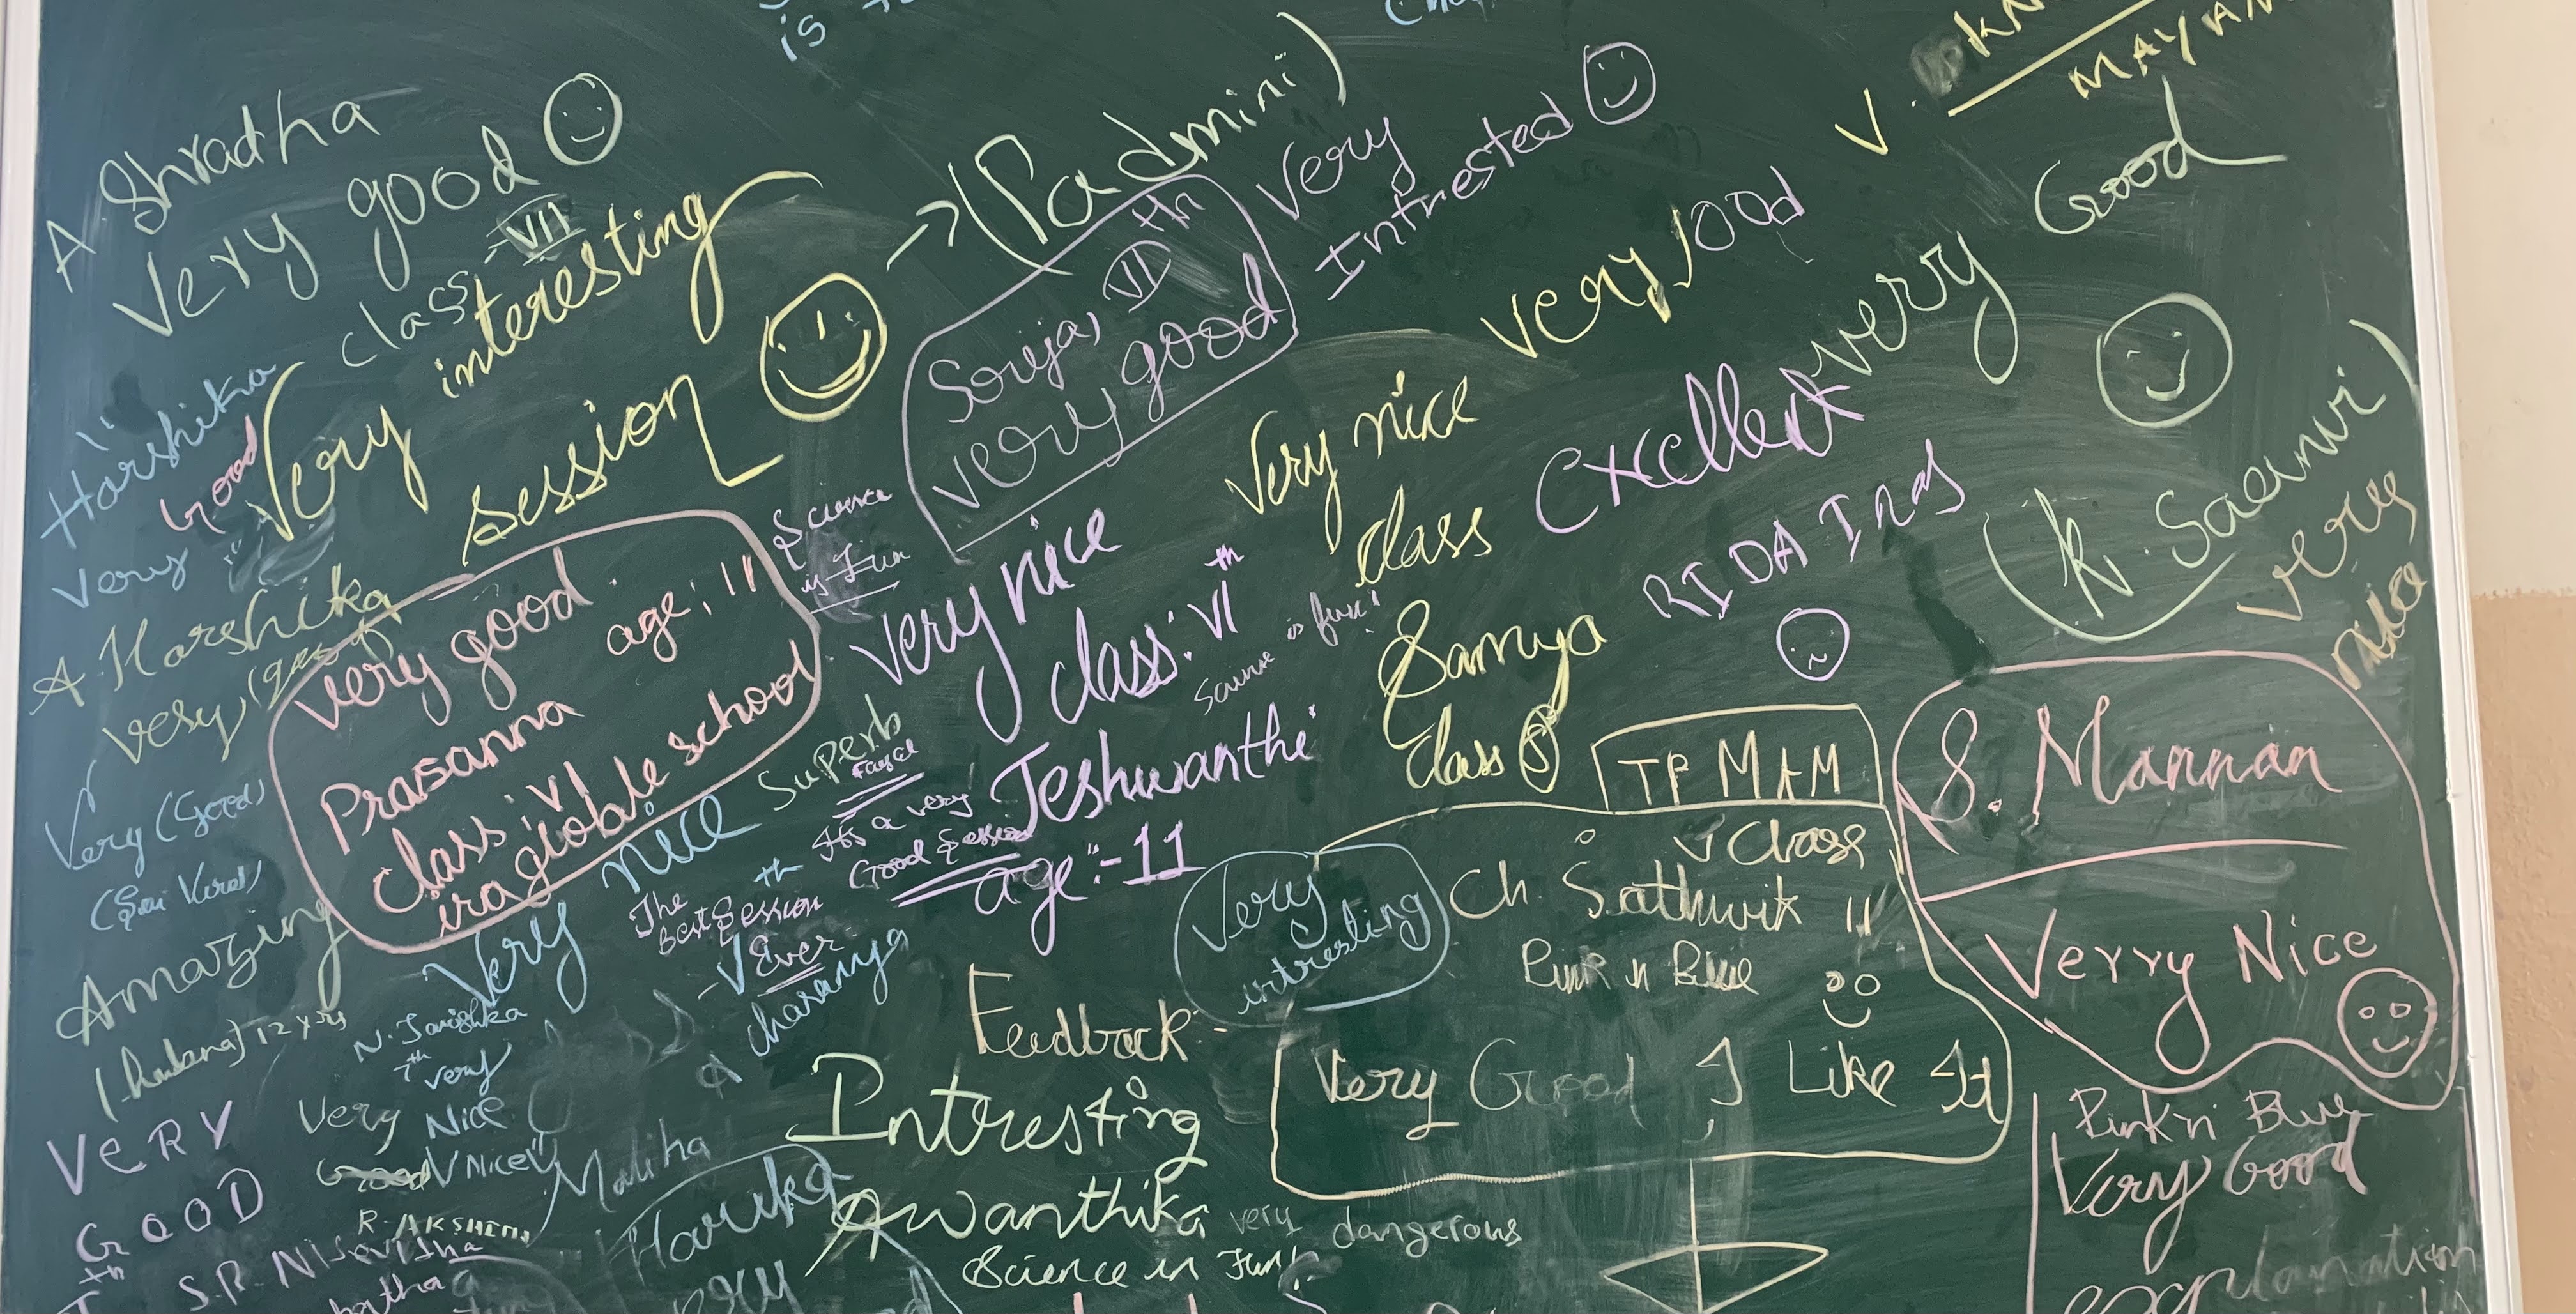 A Shradha
Very good
class VII
Very interesting
session
(Padmini)
Very
Intrested
VII th
very good
very good
very Good
Harshika
Good
very
A. Harshika
very (good)
Very nice
class
Excellent
RIDA
K. Saanvi
very
nice
Science
is Fun
very good.
age: 11
Prasanna
class: VI
school
very nice
class: VI th
Science is fun!
Jeshwanthi
age:- 11
Samya
class
TP MAM
S. Mannan
Verry Nice
Superb
It's a very
Good Session
nice
Very
The
Best Session
Ever
Very (Good)
Amazing
12 yrs
V class
Ch. Sathwik 11
Pink n Blue
Very Good I Like It
Very
intresting
Feedback:-
Intresting
Awanthika
very dangerous
Science in Fun
N. Tanishka
7th very
Very Nice
V Nice
Maliha
VERY
GOOD
Pink n Blue
Very Good
explanation